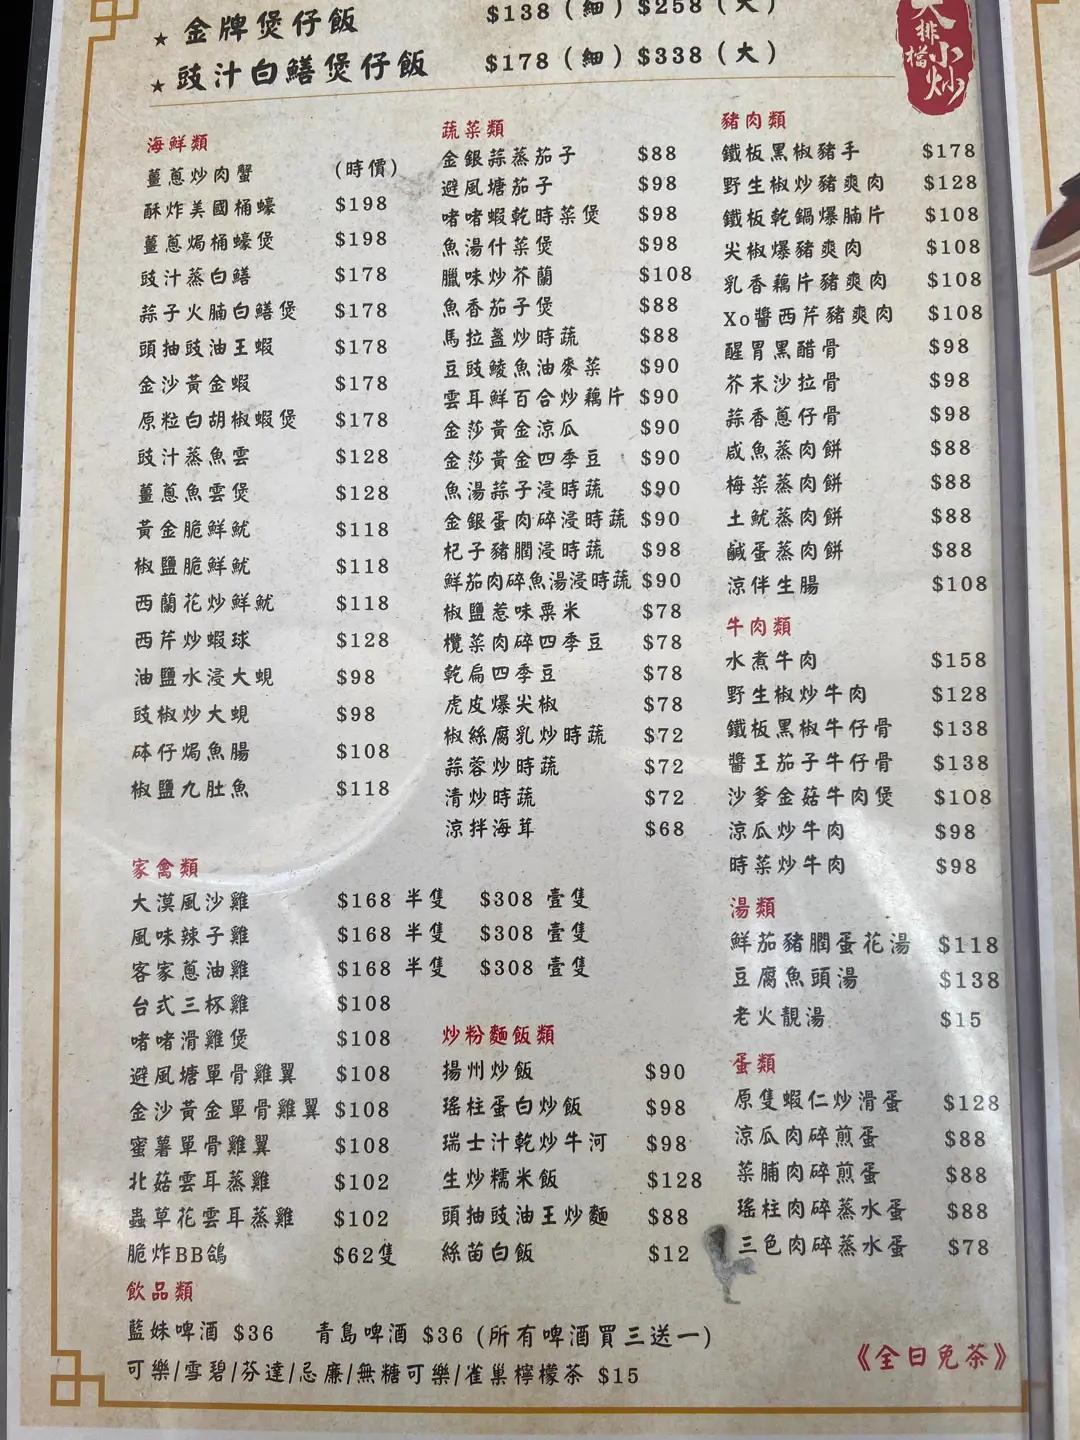 ★ 金牌煲仔飯 $138（細）$258（大）
★ 豉汁白鱔煲仔飯 $178（細）$338（大）
大排檔小炒
海鮮類
薑蔥炒肉蟹 (時價)
酥炸美國桶蠔 $198
薑蔥焗桶蠔煲 $198
豉汁蒸白鱔 $178
蒜子火腩白鱔煲 $178
頭抽豉油王蝦 $178
金沙黃金蝦 $178
原粒白胡椒蝦煲 $178
豉汁蒸魚雲 $128
薑蔥魚雲煲 $128
黃金脆鮮魷 $118
椒鹽脆鮮魷 $118
西蘭花炒鮮魷 $118
西芹炒蝦球 $128
油鹽水浸大蜆 $98
豉椒炒大蜆 $98
砵仔焗魚腸 $108
椒鹽九肚魚 $118
蔬菜類
金銀蒜蒸茄子 $88
避風塘茄子 $98
啫啫蝦乾時菜煲 $98
魚湯什菜煲 $98
臘味炒芥蘭 $108
魚香茄子煲 $88
馬拉盞炒時蔬 $88
豆豉鯪魚油麥菜 $90
雲耳鮮百合炒藕片 $90
金莎黃金涼瓜 $90
金莎黃金四季豆 $90
魚湯蒜子浸時蔬 $90
金銀蛋肉碎浸時蔬 $90
杞子豬膶浸時蔬 $98
鮮茄肉碎魚湯浸時蔬 $90
椒鹽惹味粟米 $78
欖菜肉碎四季豆 $78
乾扁四季豆 $78
虎皮爆尖椒 $78
椒絲腐乳炒時蔬 $72
蒜蓉炒時蔬 $72
清炒時蔬 $72
涼拌海茸 $68
豬肉類
鐵板黑椒豬手 $178
野生椒炒豬爽肉 $128
鐵板乾鍋爆腩片 $108
尖椒爆豬爽肉 $108
乳香藕片豬爽肉 $108
Xo醬西芹豬爽肉 $108
醒胃黑醋骨 $98
芥末沙拉骨 $98
蒜香蔥仔骨 $98
咸魚蒸肉餅 $88
梅菜蒸肉餅 $88
土魷蒸肉餅 $88
鹹蛋蒸肉餅 $88
涼伴生腸 $108
牛肉類
水煮牛肉 $158
野生椒炒牛肉 $128
鐵板黑椒牛仔骨 $138
醬王茄子牛仔骨 $138
沙爹金菇牛肉煲 $108
涼瓜炒牛肉 $98
時菜炒牛肉 $98
湯類
鮮茄豬膶蛋花湯 $118
豆腐魚頭湯 $138
老火靚湯 $15
蛋類
原隻蝦仁炒滑蛋 $128
涼瓜肉碎煎蛋 $88
菜脯肉碎煎蛋 $88
瑤柱肉碎蒸水蛋 $88
三色肉碎蒸水蛋 $78
家禽類
大漠風沙雞 $168 半隻 $308 壹隻
風味辣子雞 $168 半隻 $308 壹隻
客家蔥油雞 $168 半隻 $308 壹隻
台式三杯雞 $108
啫啫滑雞煲 $108
避風塘單骨雞翼 $108
金沙黃金單骨雞翼 $108
蜜薯單骨雞翼 $108
北菇雲耳蒸雞 $102
蟲草花雲耳蒸雞 $102
脆炸BB鴿 $62隻
炒粉麵飯類
揚州炒飯 $90
瑤柱蛋白炒飯 $98
瑞士汁乾炒牛河 $98
生炒糯米飯 $128
頭抽豉油王炒麵 $88
絲苗白飯 $12
飲品類
藍妹啤酒 $36 青島啤酒 $36 (所有啤酒買三送一)
可樂/雪碧/芬達/忌廉/無糖可樂/雀巢檸檬茶 $15
《全日免茶》